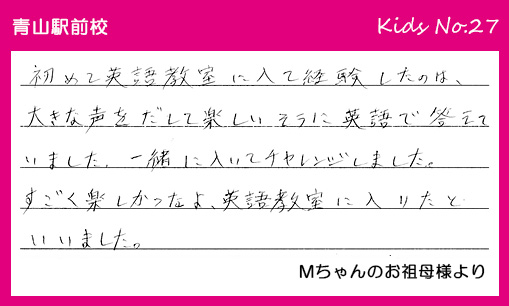 青山駅前校
Kids No.27
初めて英語教室に入て経験したのは、
大きな声をだして楽しいそうに英語で答えて
いました。一緒に入いてチャレンジしました。
すごく楽しかったよ、英語教室に入りたと
いいました。
Mちゃんのお祖母様より